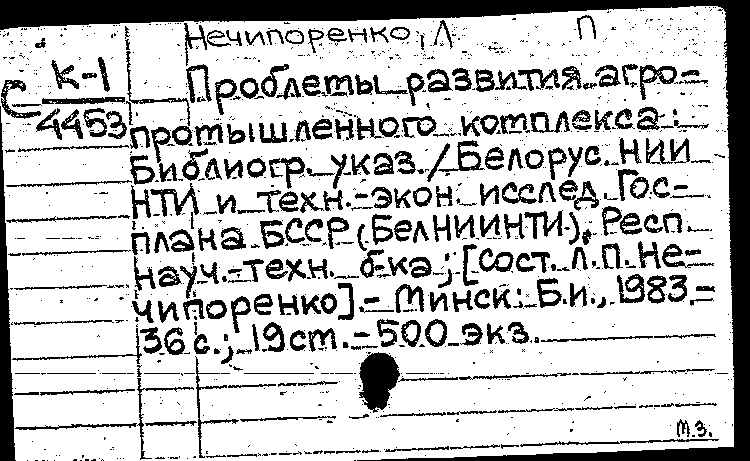 Нечипоренко, Л П
С К-1
4453
Проблемы развития агро-
промышленного комплекса:
Библиогр. указ./Белорус. НИИ
НТИ и техн.-экон. исслед. Гос-
плана БССР (БелНИИНТИ), Респ.
науч.-техн. б-ка; [сост. Л.П. Не-
чипоренко].- Минск: Б.и., 1983.-
36 с.; 19 см. - 500 экз.
М.З.